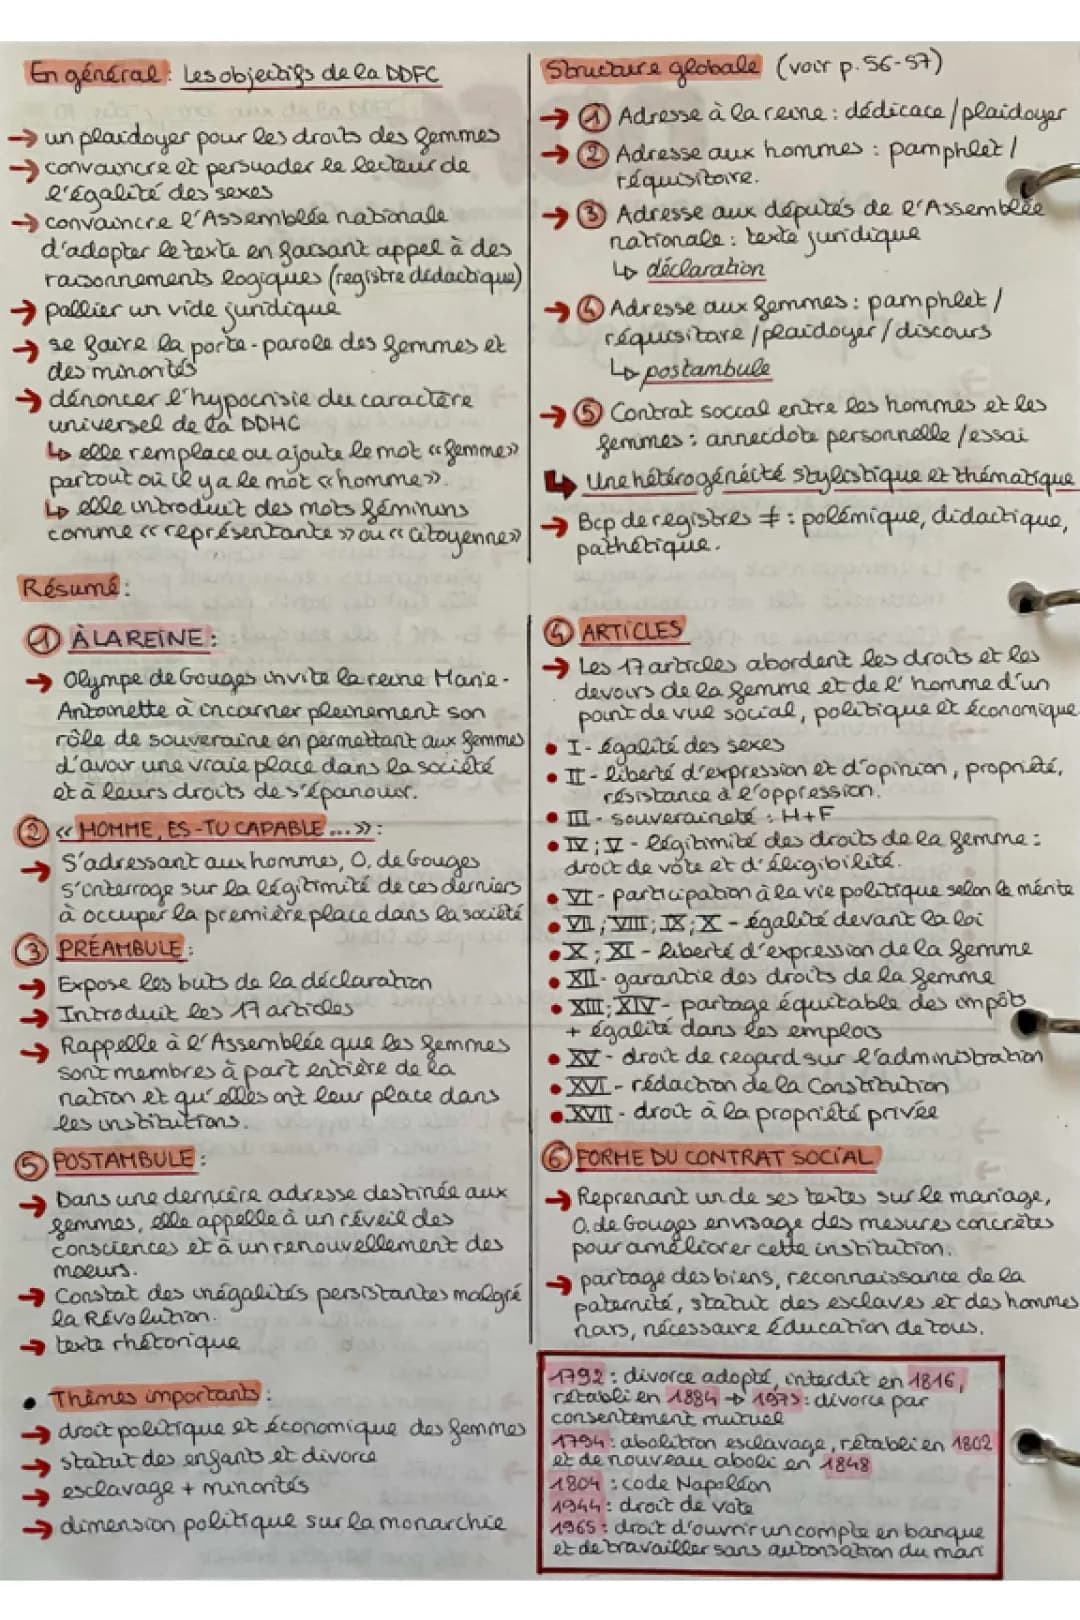 En général : Les objectifs de la DDFC
→ un plaidoyer pour les droits des femmes
→ convaincre et persuader le lecteur de
l'égalité des sexes
→ convaincre l'Assemblée nationale
d'adopter le texte en faisant appel à des
raisonnements logiques (registre didactique)
→ pallier un vide juridique
→ se faire la porte-parole des femmes et
des minorités
→ dénoncer l'hypocrisie du caractère
universel de la DDHC
↳ elle remplace ou ajoute le mot «femme»
partout où il y a le mot «homme».
↳ elle introduit des mots féminins
comme «représentante» ou «citoyenne»
Structure globale (voir p.56-57)
→ ① Adresse à la reine : dédicace/plaidoyer
→ ② Adresse aux hommes : pamphlet/
réquisitoire.
→ ③ Adresse aux députés de l'Assemblée
nationale : texte juridique
↳ déclaration
→ ④ Adresse aux femmes : pamphlet/
réquisitoire/plaidoyer/discours
↳ postambule
→ ⑤ Contrat social entre les hommes et les
femmes : annecdote personnelle/essai
↳ Une hétérogénéité stylistique et thématique
→ Bcp de registres ≠ : polémique, didactique,
pathétique.
Résumé :
① À LA REINE :
→ Olympe de Gouges invite la reine Marie-
Antoinette à incarner pleinement son
rôle de souveraine en permettant aux femmes
d'avoir une vraie place dans la société
et à leurs droits de s'épanouir.
② « HOMME, ES-TU CAPABLE ... » :
→ S'adressant aux hommes, O. de Gouges
s'interroge sur la légitimité de ces derniers
à occuper la première place dans la société
③ PRÉAMBULE :
→ Expose les buts de la déclaration
→ Introduit les 17 articles
→ Rappelle à l'Assemblée que les femmes
sont membres à part entière de la
nation et qu'elles ont leur place dans
les institutions.
④ ARTICLES
→ Les 17 articles abordent les droits et les
devoirs de la femme et de l'homme d'un
point de vue social, politique et économique
• I - égalité des sexes
• II - liberté d'expression et d'opinion, propriété,
résistance à l'oppression.
• III - souveraineté : H+F
• IV ; V - légitimité des droits de la femme :
droit de vote et d'éligibilité.
• VI - participation à la vie politique selon le mérite
• VII ; VIII ; IX ; X - égalité devant la loi
• X ; XI - liberté d'expression de la femme
• XII - garantie des droits de la femme
• XIII ; XIV - partage équitable des impôts
+ égalité dans les emplois
• XV - droit de regard sur l'administration
• XVI - rédaction de la Constitution
• XVII - droit à la propriété privée
⑤ POSTAMBULE :
→ Dans une dernière adresse destinée aux
femmes, elle appelle à un réveil des
consciences et à un renouvellement des
moeurs.
→ Constat des inégalités persistantes malgré
la Révolution.
→ texte rhétorique
⑥ FORME DU CONTRAT SOCIAL
→ Reprenant un de ses textes sur le mariage,
O. de Gouges envisage des mesures concrètes
pour améliorer cette institution.
→ partage des biens, reconnaissance de la
paternité, statut des esclaves et des hommes
noirs, nécessaire éducation de tous.
• Thèmes importants :
→ droit politique et économique des femmes
→ statut des enfants et divorce
→ esclavage + minorités
→ dimension politique sur la monarchie
1792 : divorce adopté, interdit en 1816,
rétabli en 1884 → 1975 : divorce par
consentement mutuel
1794 : abolition esclavage, rétabli en 1802
et de nouveau aboli en 1848
1804 : code Napoléon
1944 : droit de vote
1965 : droit d'ouvrir un compte en banque
et de travailler sans autorisation du mari